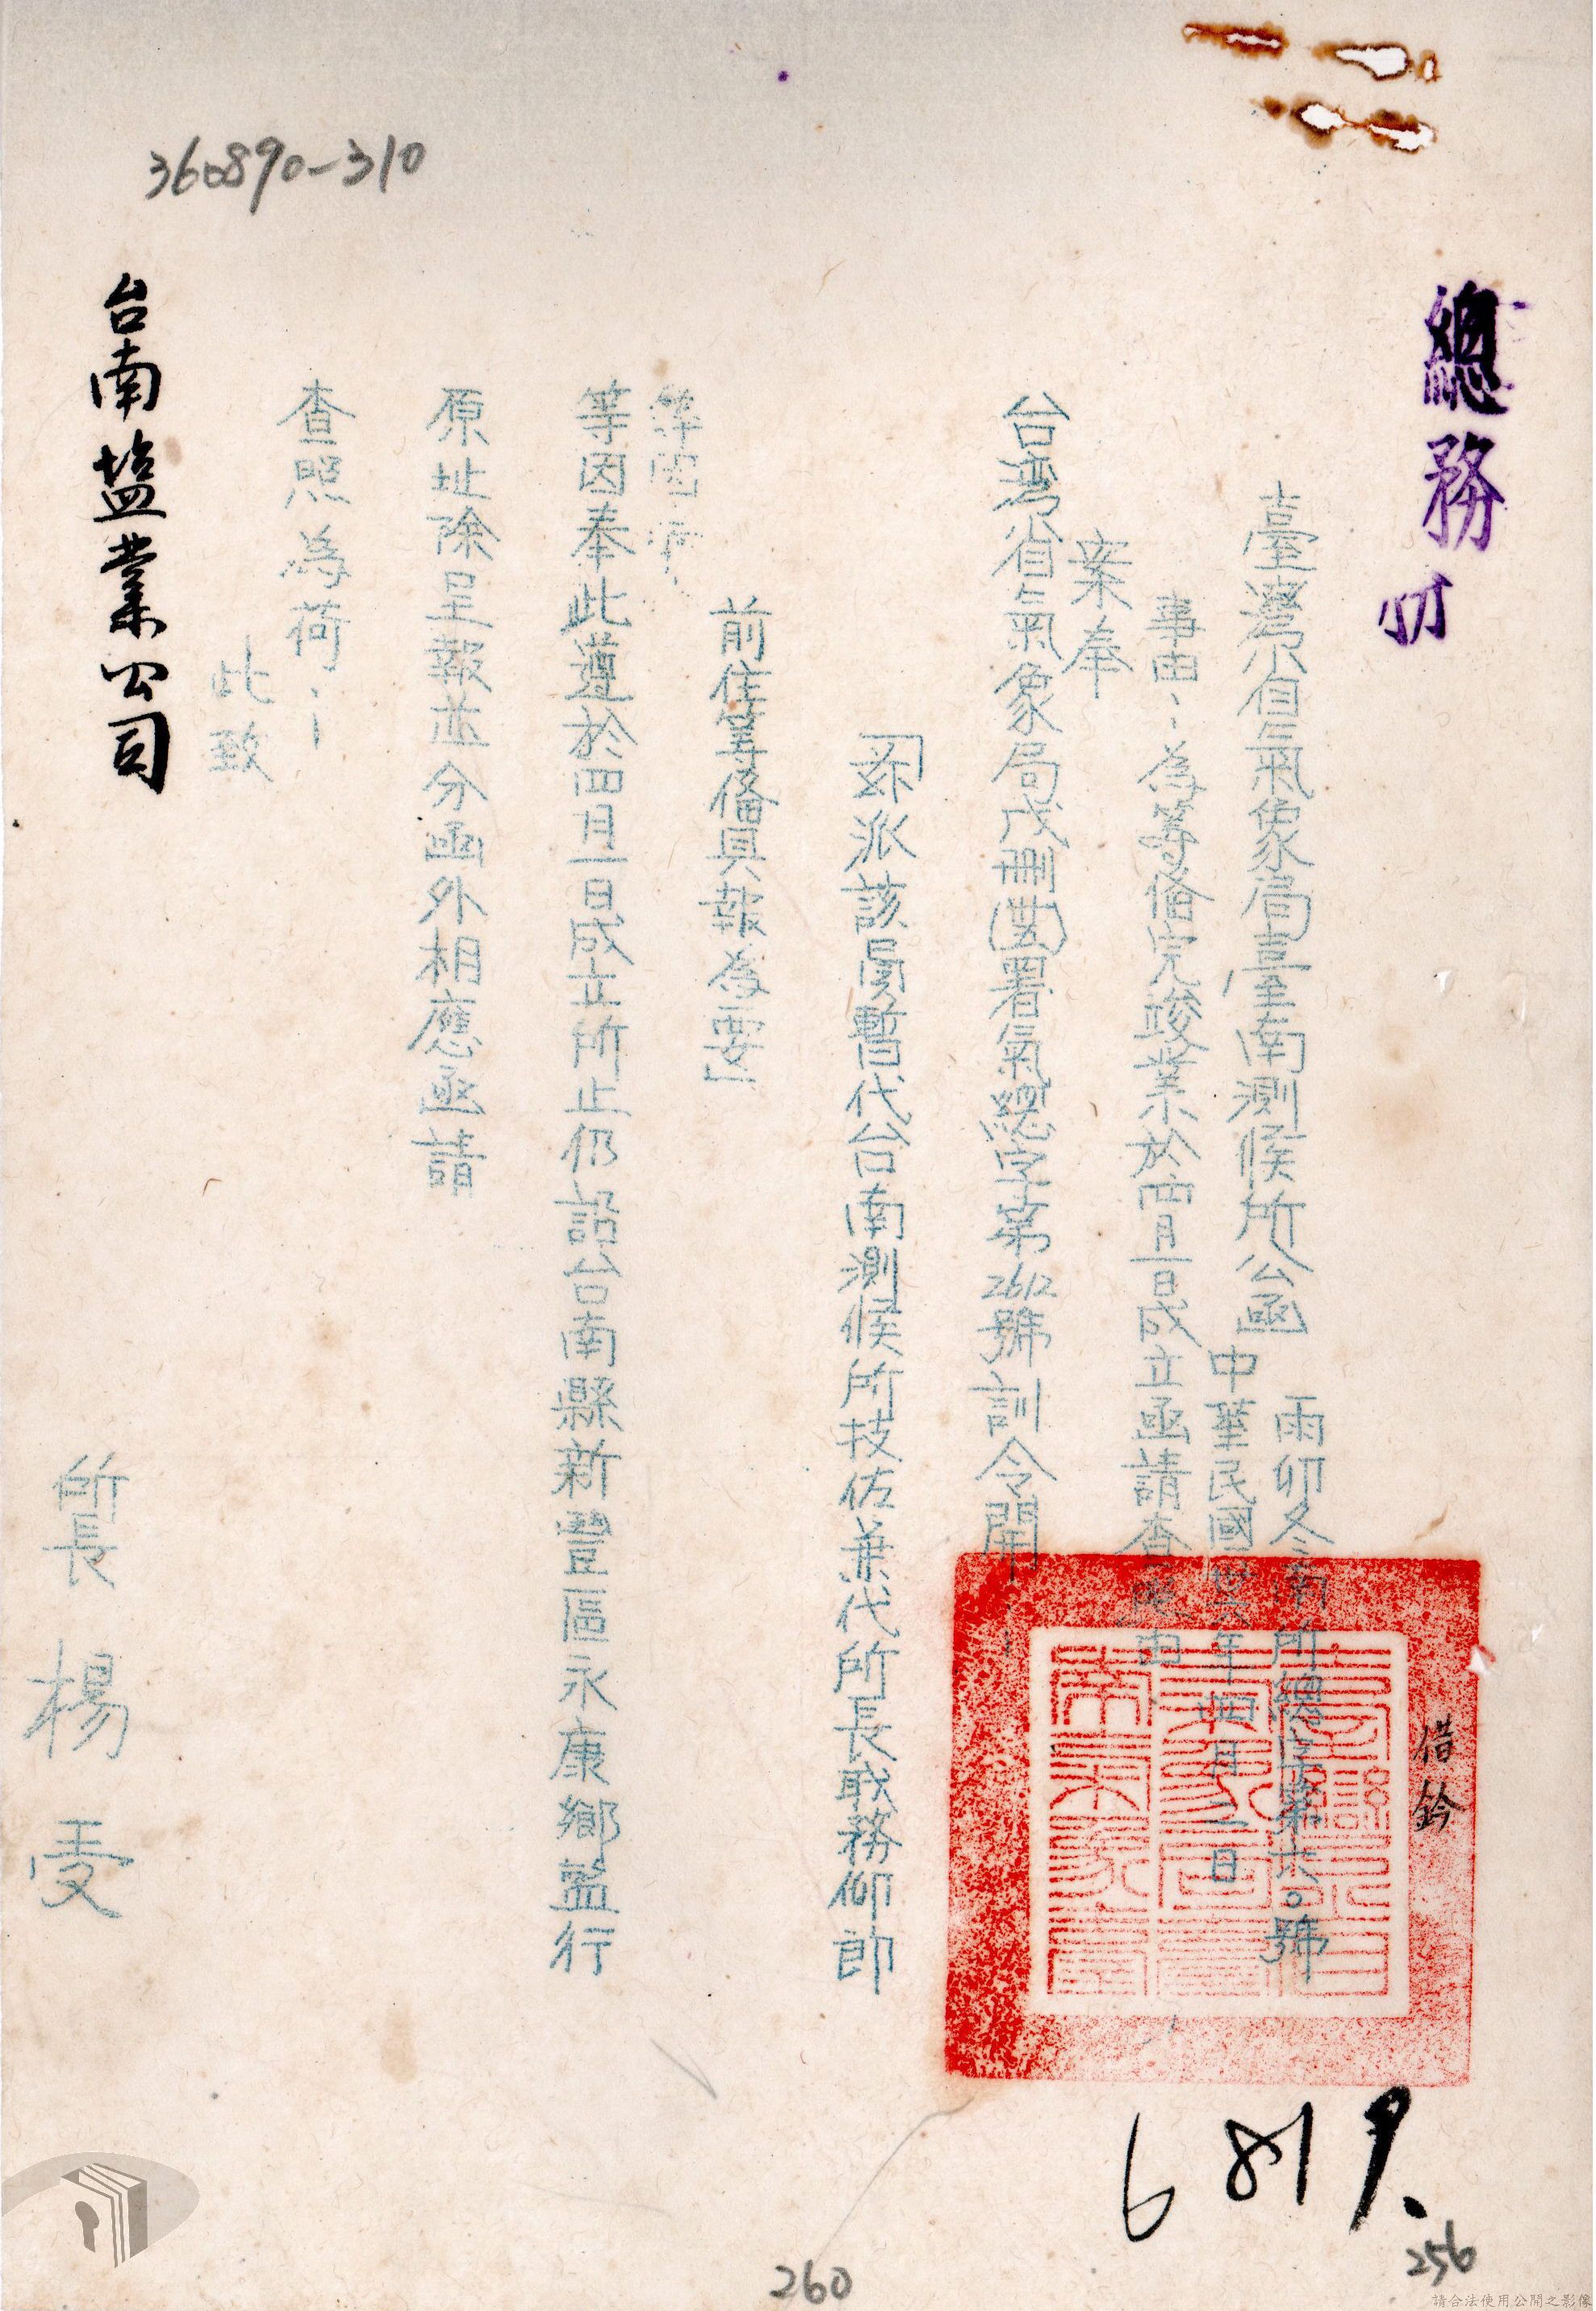 360890-310
總務
臺灣省氣象局臺南測候所公函
雨卯冬南所總字第六○號
中華民國卅六年四月二日
事由：為籌備完竣業於四月一日成立函請查照由
案奉
台灣省氣象局戌刪署氣總字第2612號訓令開：
「茲派該員暫代台南測候所技佐兼代所長職務仰即
前往籌備具報為要」
等因奉此遵於四月一日成立所址仍設台南縣新豐區永康鄉鹽行
原址除呈報並分函外相應函請
查照為荷：
此致
台南塩業公司
所長 楊
借鈐
6819.
256
260
請合法使用公開之影像